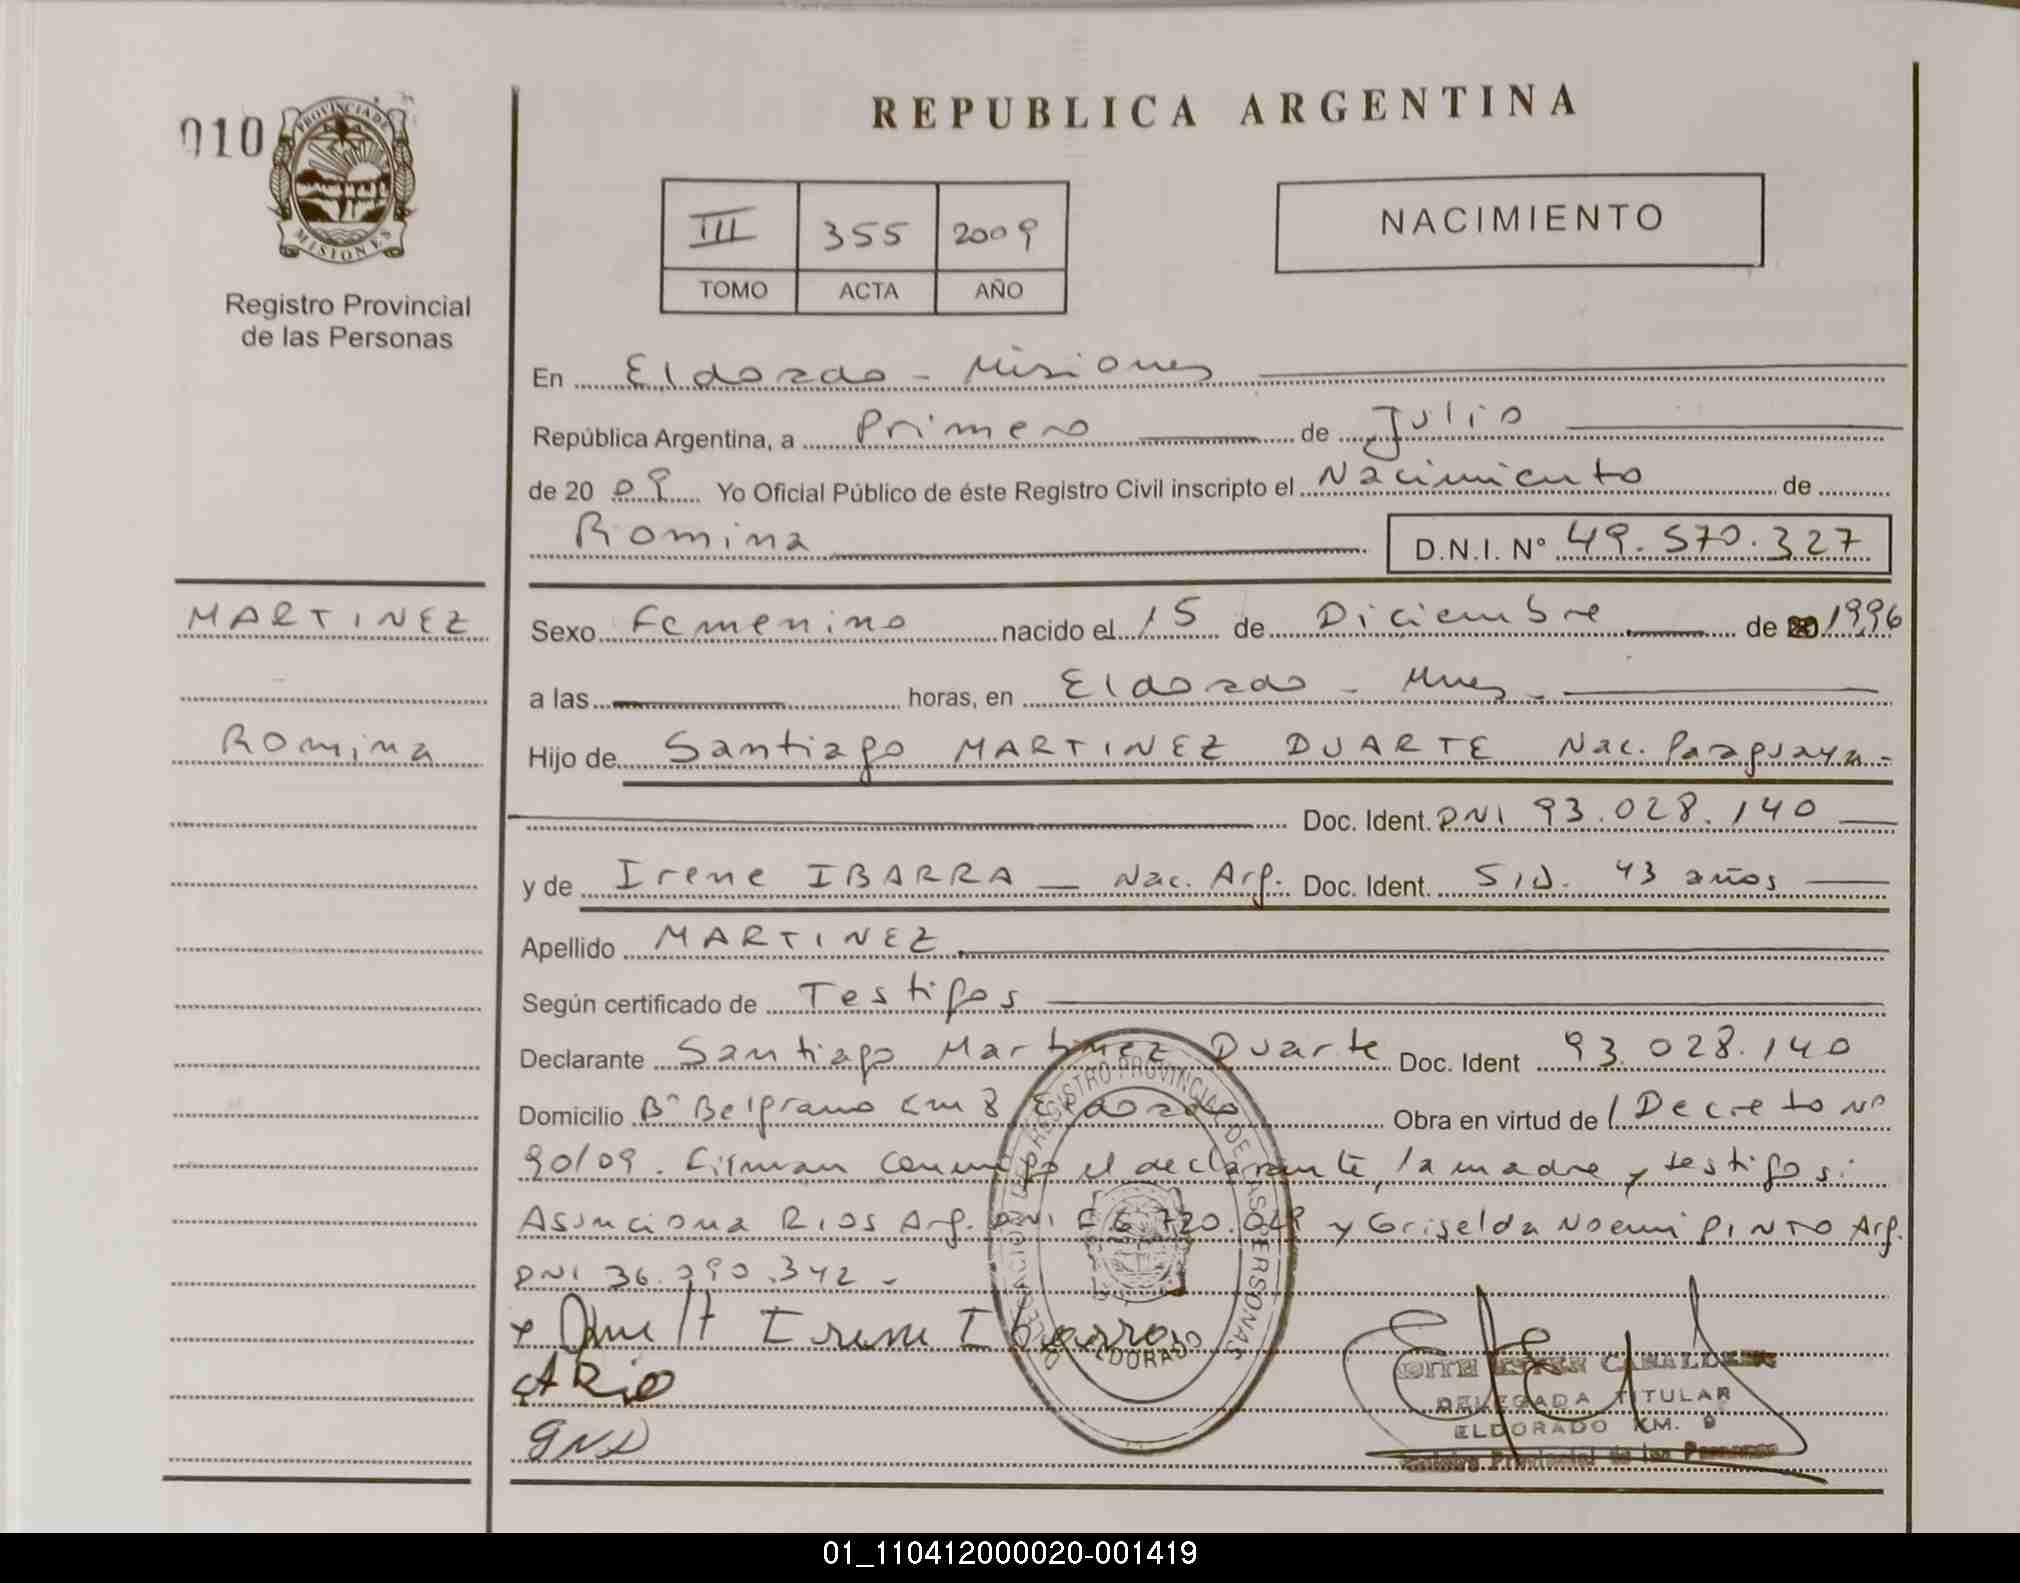 010
PROVINCIA DE
MISIONES
Registro Provincial
de las Personas
REPUBLICA ARGENTINA
III 355 2009
TOMO ACTA AÑO
NACIMIENTO
En Eldorado - Misiones
República Argentina, a Primero de Julio
de 20 09 Yo Oficial Público de éste Registro Civil inscripto el Nacimiento de
Romina D.N.I. Nº 49.570.327
MARTINEZ
Romina
Sexo Femenino nacido el 15 de Diciembre de 1996
a las horas, en Eldorado - Mnes -
Hijo de Santiago MARTINEZ DUARTE Nac. Paraguaya -
Doc. Ident. DNI 93.028.140
y de Irene IBARRA Nac. Arg. Doc. Ident. S/D. 43 años
Apellido MARTINEZ
Según certificado de Testigos
Declarante Santiago Martinez Duarte Doc. Ident 93.028.140
Domicilio Bº Belgrano km 8 Eldorado Obra en virtud de / Decreto Nº
90/09. Firman conmigo el declarante, la madre y testigos:
Asunciona RIOS Arg. DNI y Griselda Noemi PINTO Arg.
DNI 36.090.342 -
Irene Ibarra
A Rio
GNP
REGISTRO PROVINCIAL DE LAS PERSONAS
ELDORADO
DELEGADA TITULAR
ELDORADO KM. 8
Registro Provincial de las Personas
01_110412000020-001419